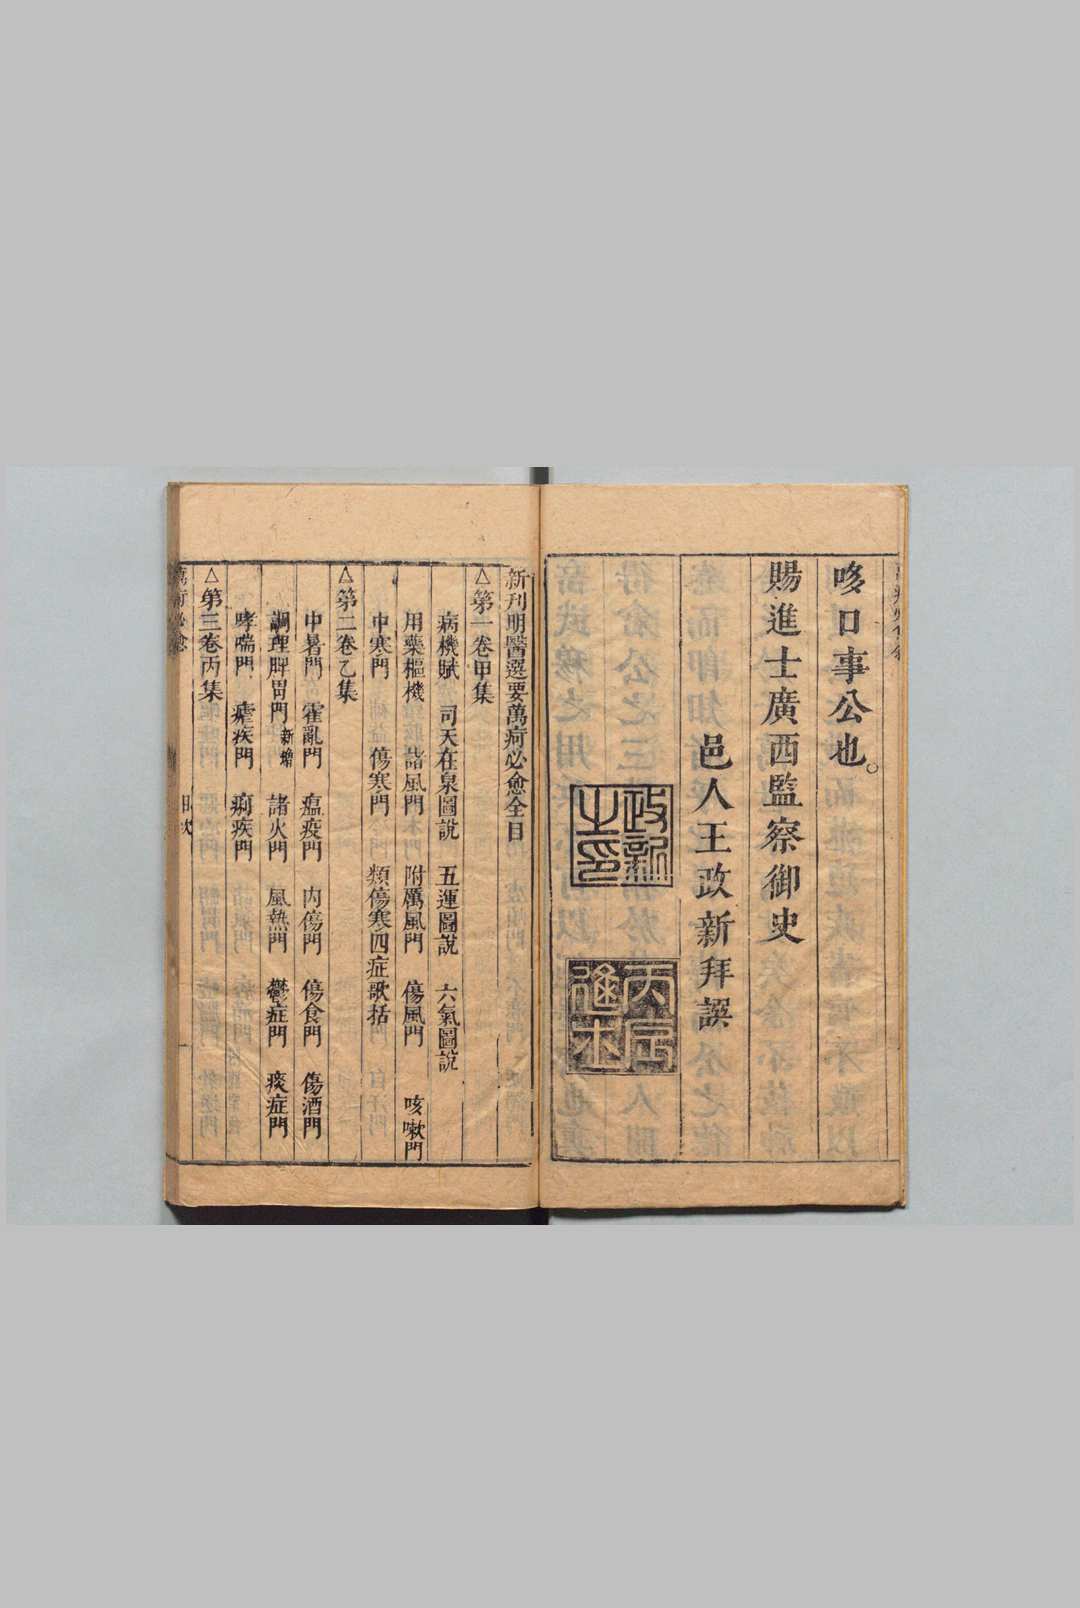 咳口事公也。
賜進士廣西監察御史
邑人王政新拜譔
政新之印
丙辰進士
新刊明醫選要萬疴必愈全目
△第一卷甲集
病機賦 司天在泉圖說 五運圖說 六氣圖說
用藥樞機 諸風門 附厲風門 傷風門 咳嗽門
中寒門 傷寒門 類傷寒四症歌括
△第二卷乙集
中暑門 霍亂門 瘟疫門 內傷門 傷食門 傷酒門
調理脾胃門新增 諸火門 風熱門 鬱症門 痰症門
哮喘門 瘧疾門 痢疾門
△第三卷丙集
萬疴必愈 目次